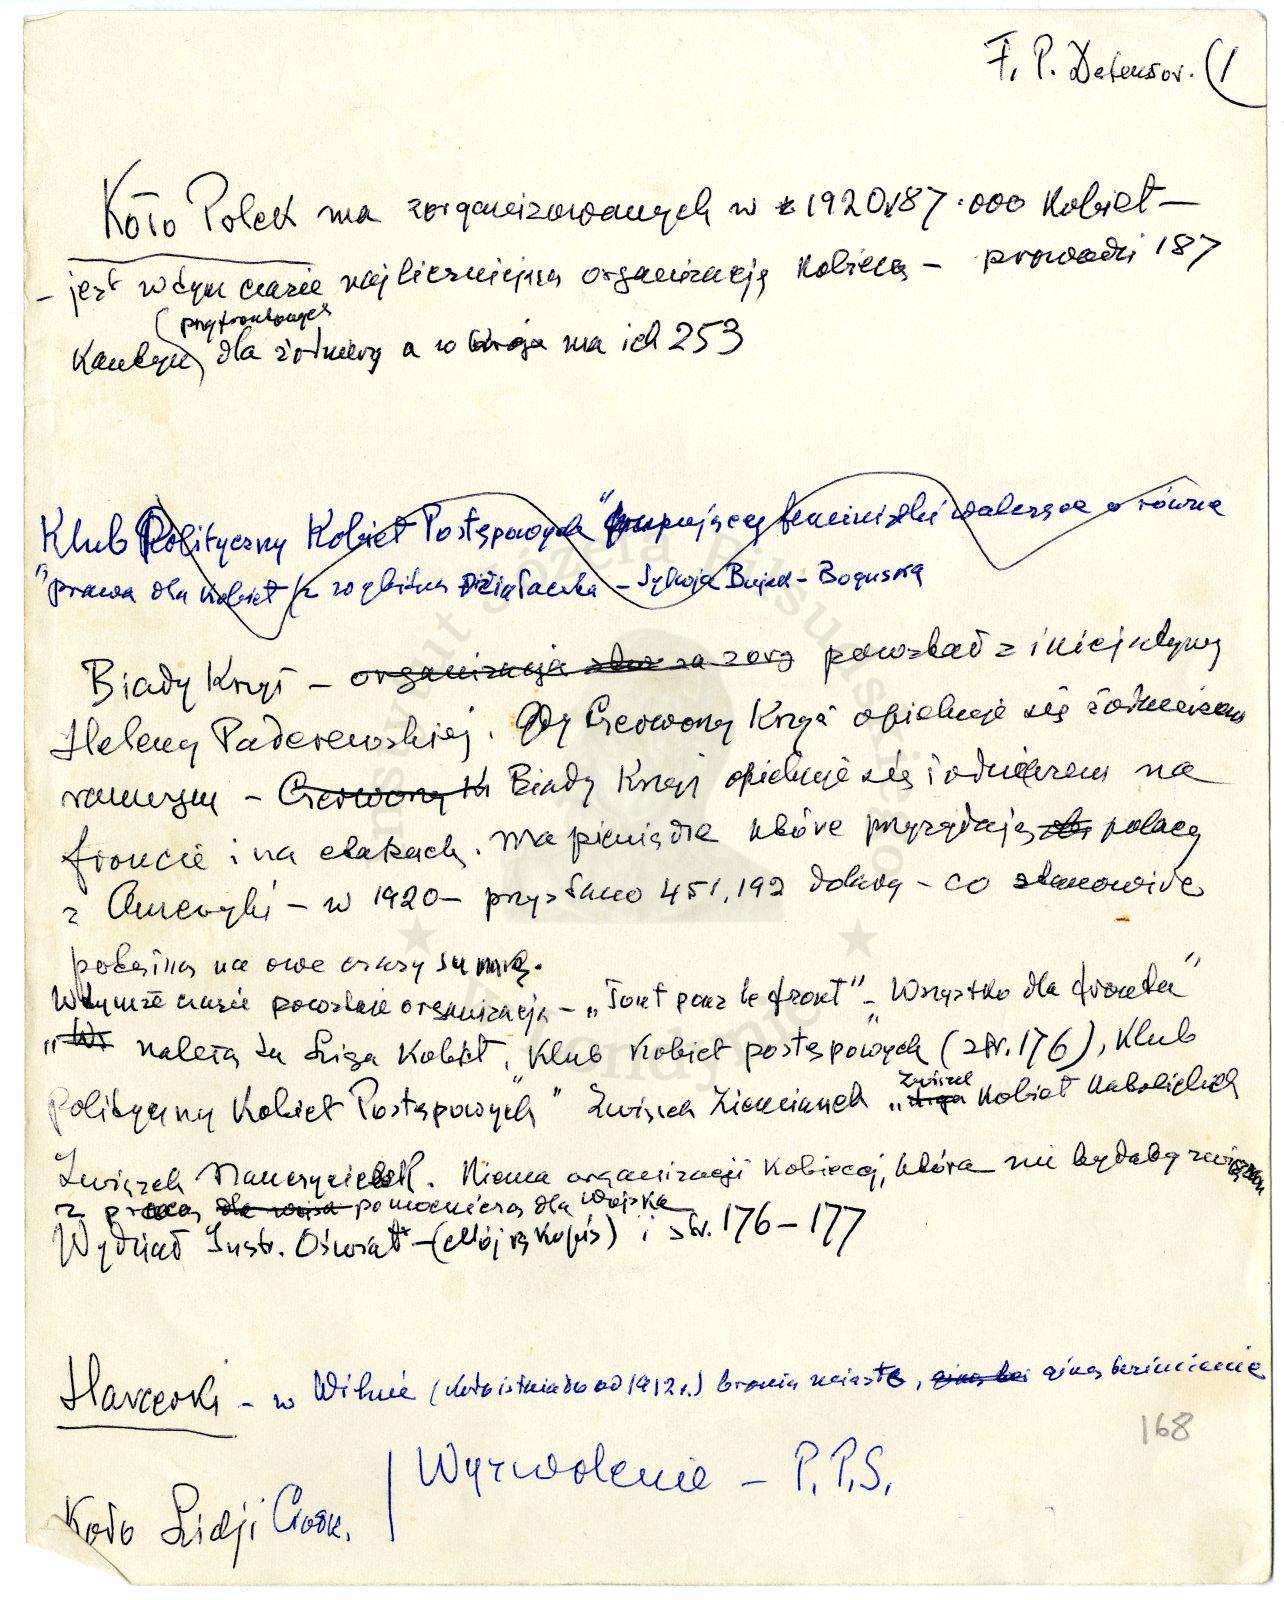 F. P. Defensor. (1
Koło Polek ma zorganizowanych w 1920 187.000 Kobiet —
— jest w tym czasie najliczniejszą organizacją Kobiecą — prowadzi 187
przyfrontowych
Kantyn dla żołnierzy a w kraju ma ich 253
Klub Polityczny Kobiet Postępowych "grupujący feministki walczące o równe
"prawa dla kobiet (z wybitna działaczka — Sylwja Bujak-Boguska
Biały Krzyż — organizacja za zorg powstał z inicjatywy
Heleny Paderewskiej. Gdy Czerwony Krzyż opiekuje się żołnierzem
rannym — Czerwony K Biały Krzyż opiekuje się żołnierzem na
froncie i na etapach. Ma pieniądze które przysyłają polacy
z Ameryki — w 1920 — przysłano 451,192 dolary — co stanowiło
potężną na owe czasy sumę.
W tymże czasie powstaje organizacja — „Tout pour le front" — Wszystko dla frontu"
należą tu Liga Kobiet, "Klub Kobiet postępowych" (str. 176), Klub
Polityczny Kobiet Postępowych" Związek Ziemianek „Liga Związek Kobiet Katolickich
Związek Nauczycielek. Niema organizacji Kobiecej, która nie byłaby związana
z pracą dla wojsa pomocniczą dla wojska
Wydział Instr. Oświat — (Mój rękopis) i str. 176–177
Harcerki — w Wilnie (koło istniało od 1912 r.) bronią miasta, giną bezi giną bezimiennie
168
Koło Lidji Ciołk. | Wyzwolenie — P.P.S.
Instytut Józefa Piłsudskiego
w Londynie